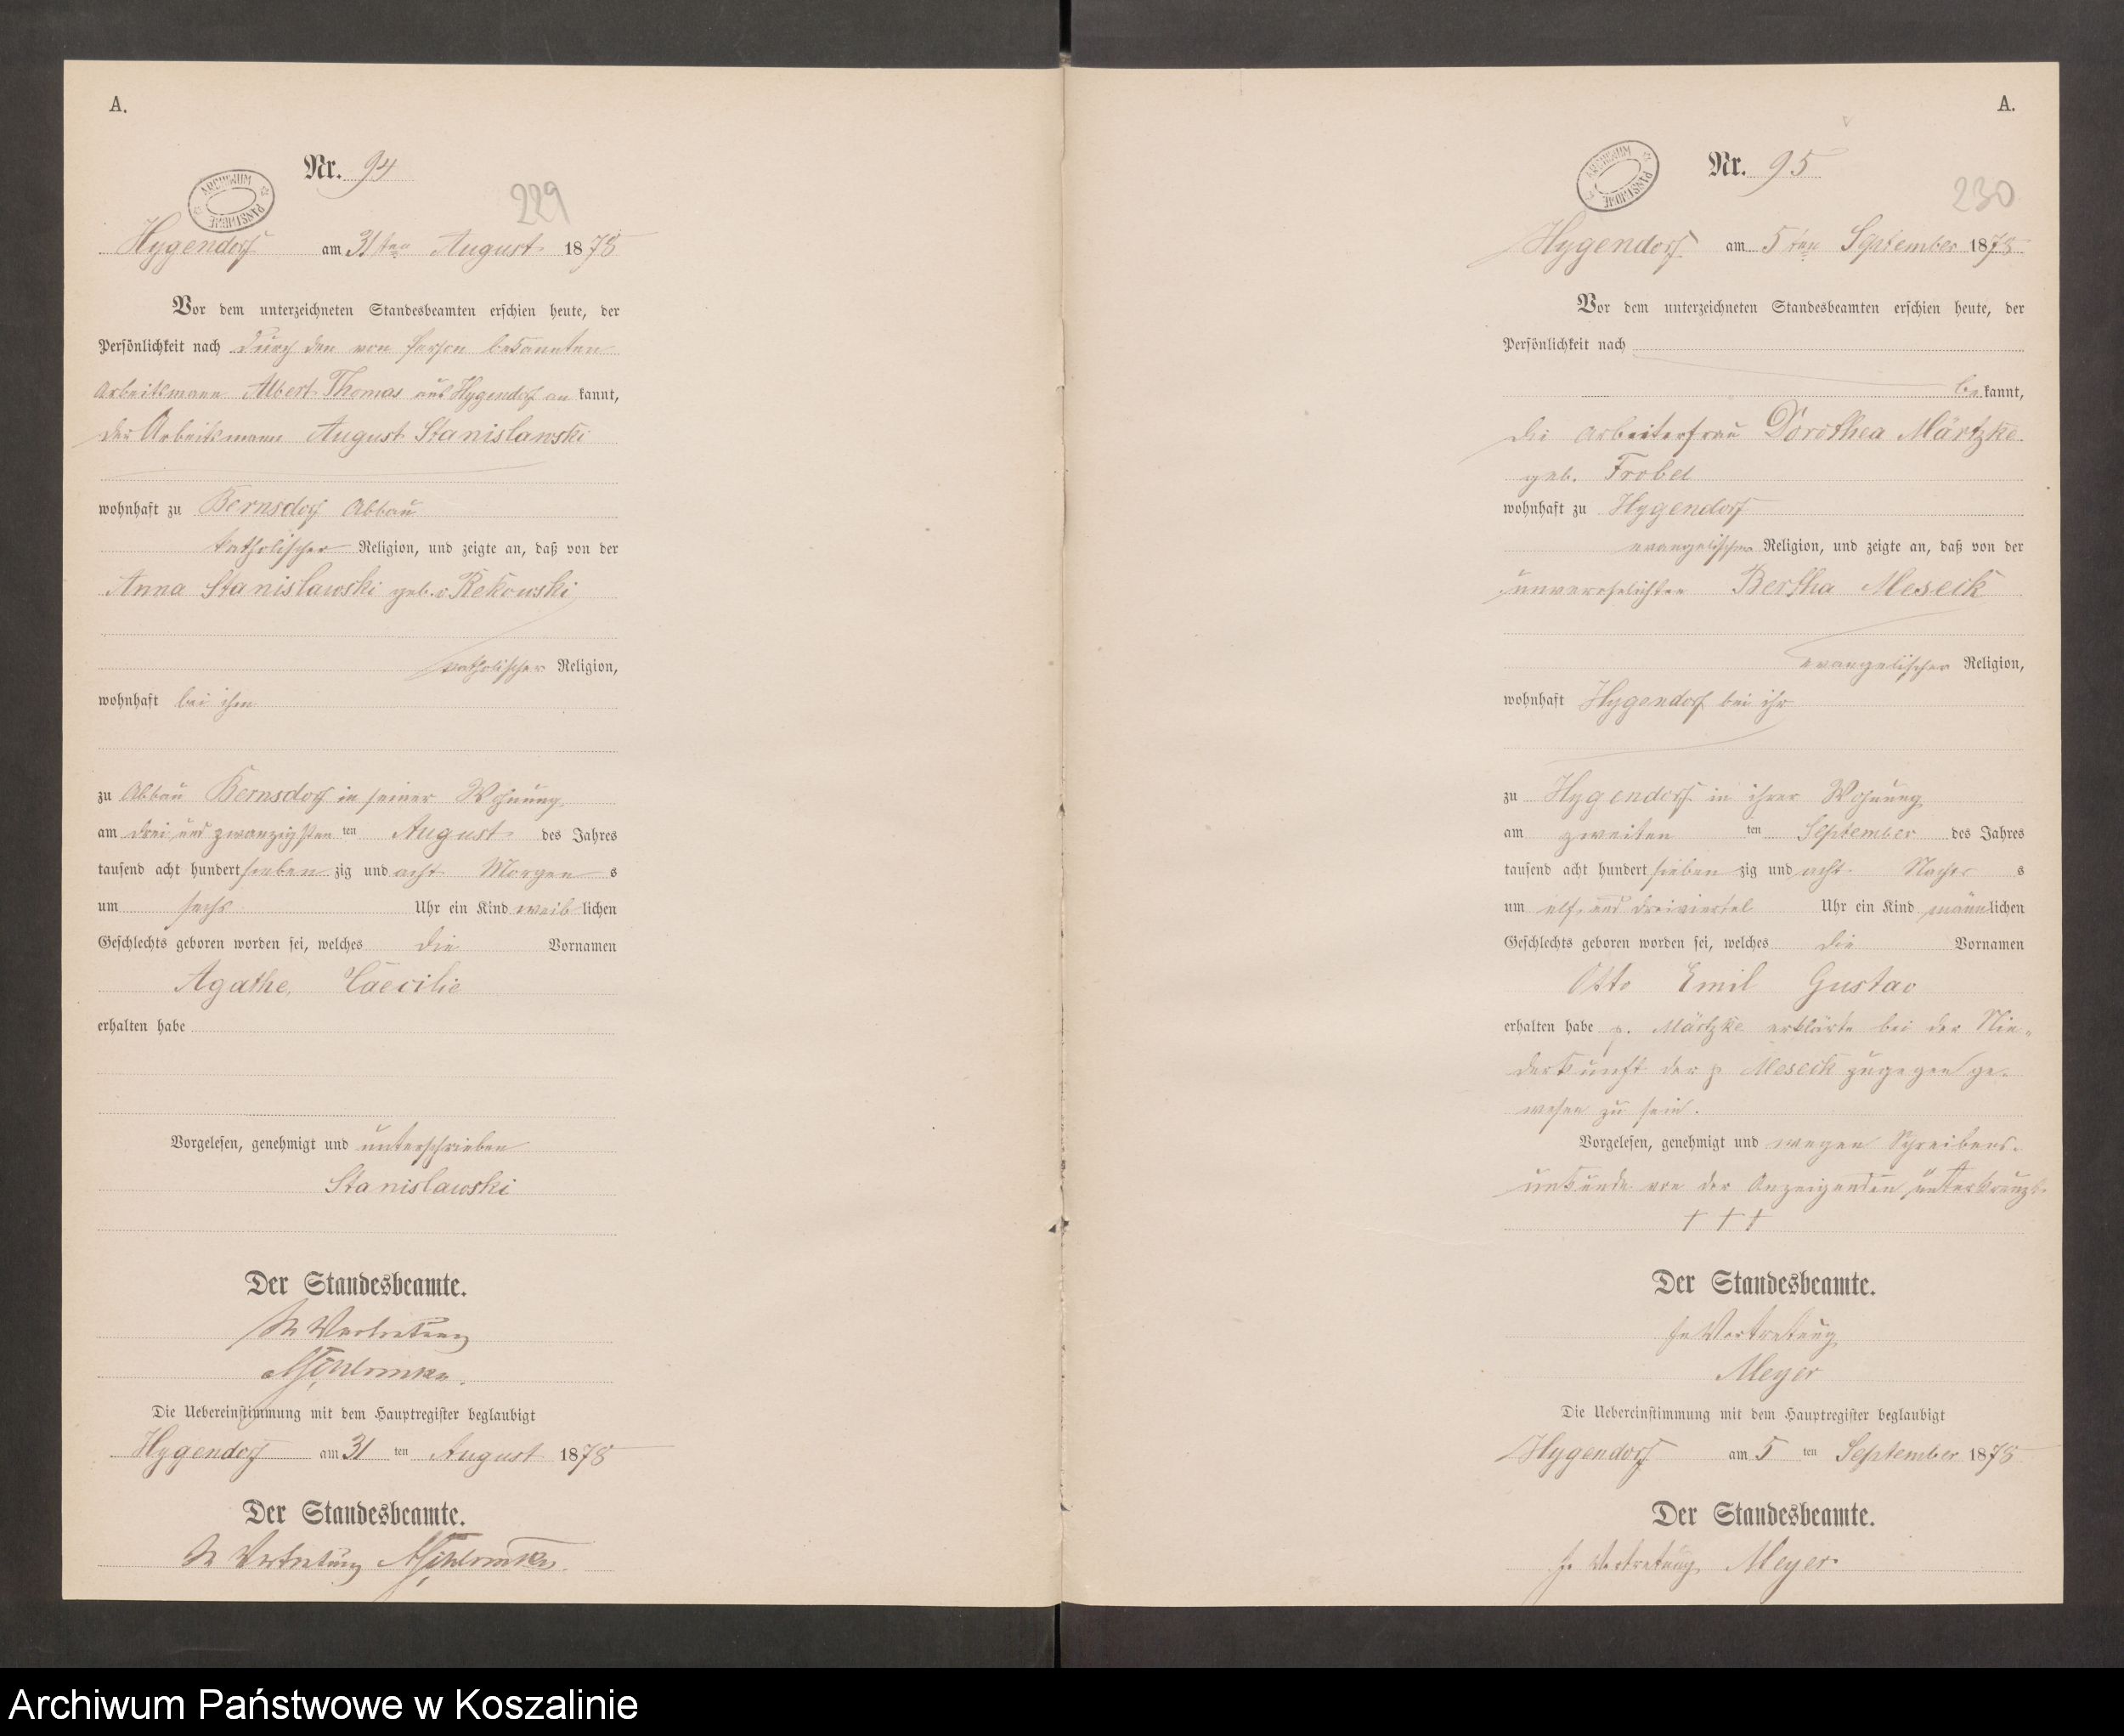 A.
Nr. 94
ARCHIWUM PAŃSTWOWE
229
Hygendorf am 31ten August 1878
Vor dem unterzeichneten Standesbeamten erschien heute, der
Persönlichkeit nach durch den von Person bekannten
Arbeitsmann Albert Thomas aus Hygendorf an kannt,
der Arbeitsmann August Stanislawski
wohnhaft zu Bernsdorf Abbau
katholischer Religion, und zeigte an, daß von der
Anna Stanislawski geb. v Rekowski
katholischer Religion,
wohnhaft bei ihm
zu Abbau Bernsdorf in seiner Wohnung
am drei und zwanzigsten ten August des Jahres
tausend acht hundert sieben zig und acht Morgen s
um sechs Uhr ein Kind weib lichen
Geschlechts geboren worden sei, welches die Vornamen
Agathe, Caecilie
erhalten habe
Vorgelesen, genehmigt und unterschrieben
Stanislawski
Der Standesbeamte.
In Vertretung
Die Uebereinstimmung mit dem Hauptregister beglaubigt
Hygendorf am 31 ten August 1878
Der Standesbeamte.
In Vertretung
A.
Nr. 95
ARCHIWUM PAŃSTWOWE
230
Hygendorf am 5ten September 1878
Vor dem unterzeichneten Standesbeamten erschien heute, der
Persönlichkeit nach
be kannt,
die Arbeiterfrau Dorothea Märtzke
geb. Frobel
wohnhaft zu Hygendorf
evangelischer Religion, und zeigte an, daß von der
unverehelichten Bertha Meseck
evangelischer Religion,
wohnhaft Hygendorf bei ihr
zu Hygendorf in ihrer Wohnung
am zweiten ten September des Jahres
tausend acht hundert sieben zig und acht Nacht s
um elf und dreiviertel Uhr ein Kind männlichen
Geschlechts geboren worden sei, welches die Vornamen
Otto Emil Gustav
erhalten habe p. Märtzke erklärte bei der Nie-
derkunft der p Meseck zugegen ge-
wesen zu sein.
Vorgelesen, genehmigt und wegen Schreibens-
unkunde von der Anzeigenden unterkreuzt
† † †
Der Standesbeamte.
In Vertretung
Meyer
Die Uebereinstimmung mit dem Hauptregister beglaubigt
Hygendorf am 5 ten September 1878
Der Standesbeamte.
In Vertretung Meyer
Archiwum Państwowe w Koszalinie